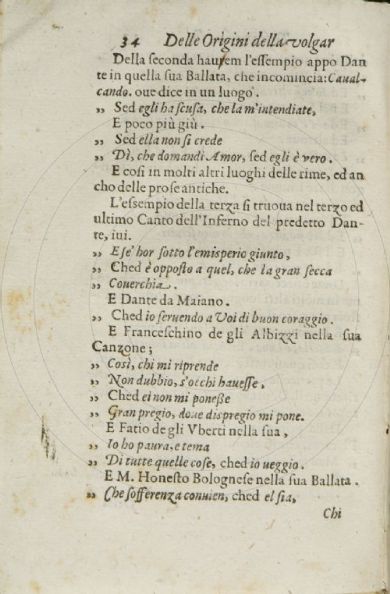 34 Delle Origini della volgar
Della seconda hauſſem l'eſſempio appo Dan
te in quella ſua Ballata, che incomincia: Caual-
cando. oue dice in un luogo.
„ Sed egli ha scuſa, che la m'intendiate,
E poco più giù.
„ Sed ella non ſi crede
„ Dì, che domandi Amor, ſed egli è vero.
E coſi in molti altri luoghi delle rime, ed an
cho delle proſe antiche.
L'eſſempio della terza ſi truoua nel terzo ed
ultimo Canto dell'Inferno del predetto Dan-
te, iui.
„ E ſe' hor ſotto l'emisperio giunto,
„ Ched è oppoſto a quel, che la gran ſecca
„ Couerchia.
E Dante da Maiano.
„ Ched io ſeruendo a Voi di buon coraggio.
E Franceſchino de gli Albizzi nella ſua
Canzone;
„ Così, chi mi riprende
„ Non dubbio, s'occhi haueſſe,
„ Ched ei non mi poneſſe
„ Gran pregio, doue dispregio mi pone.
E Fatio de gli Vberti nella ſua,
„ Io ho paura, e tema
„ Di tutte quelle coſe, ched io ueggio.
E M. Honeſto Bologneſe nella ſua Ballata.
„ Che ſofferenza conuien, ched el ſia,
Chi